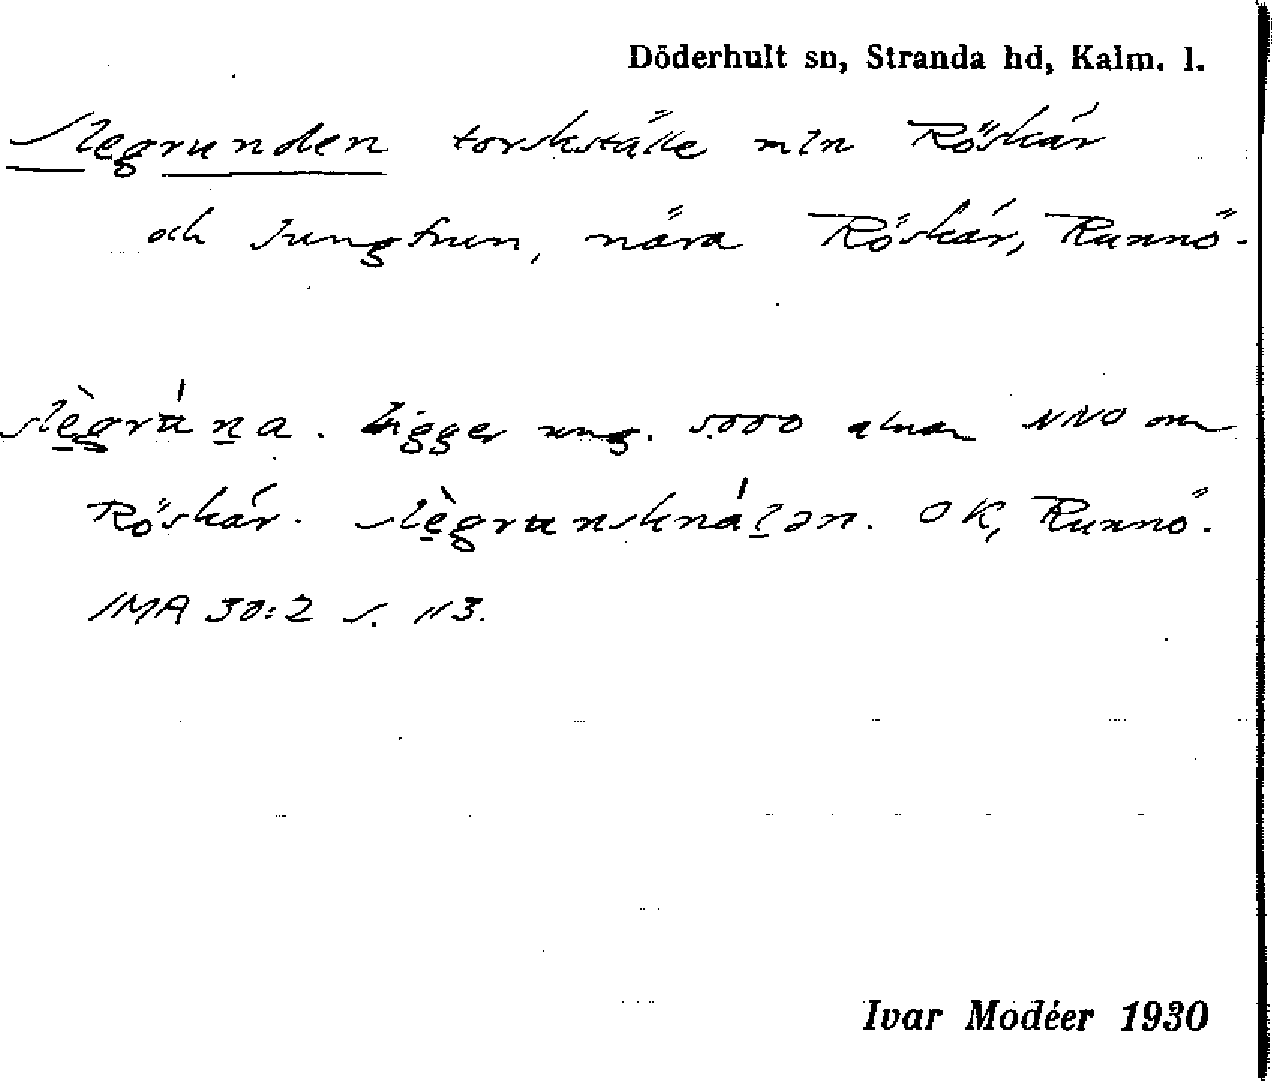 Döderhult sn, Stranda hd, Kalm. l.
Slegrunden torskställe mln Röskär
och Jungfrun, nära Röskär, Runnö.
slègrúna. Ligger ung. 5.000 alnar NNO om
Röskär. slègrunsknálən. OK, Runnö.
IMA 30:2 s. 113.
Ivar Modéer 1930